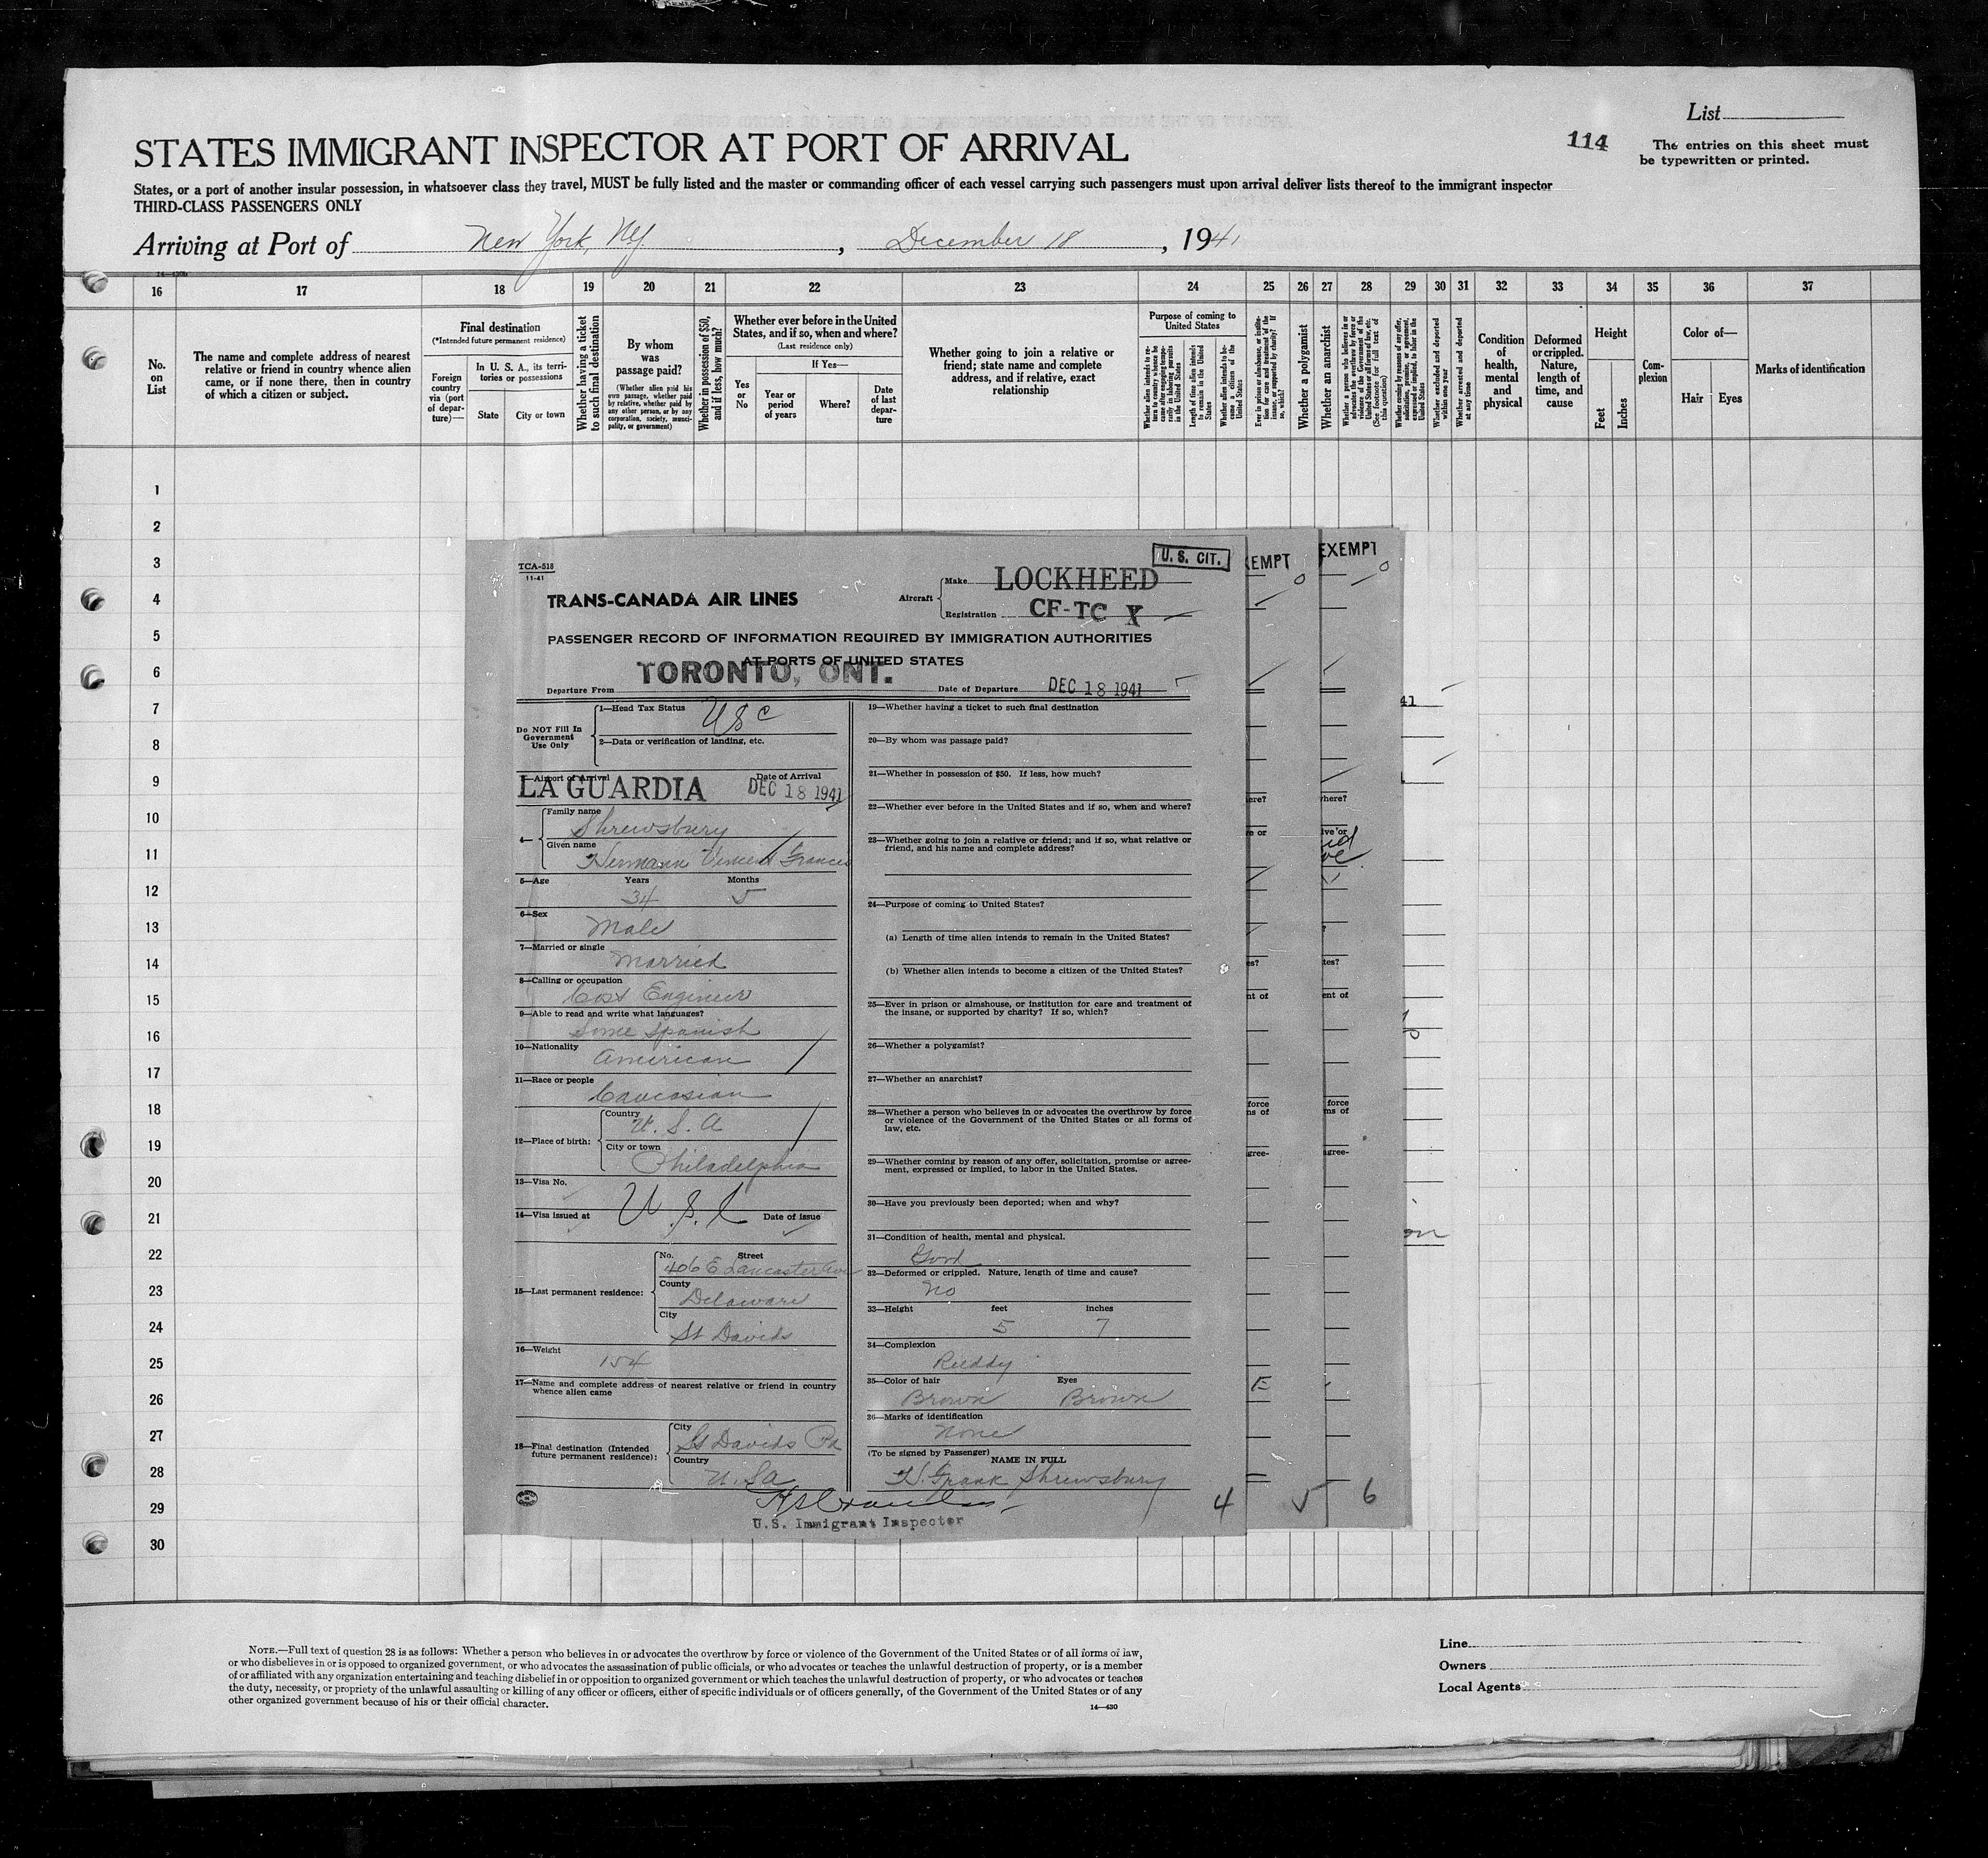 List
114
The entries on this sheet must
be typewritten or printed.
STATES IMMIGRANT INSPECTOR AT PORT OF ARRIVAL
States, or a port of another insular possession, in whatsoever class they travel, MUST be fully listed and the master or commanding officer of each vessel carrying such passengers must upon arrival deliver lists thereof to the immigrant inspector
THIRD-CLASS PASSENGERS ONLY
Arriving at Port of New York, Ny. , December 18 , 1941
16 17 18 19 20 21 22 23 24 25 26 27 28 29 30 31 32 33 34 35 36 37
No.
on
List
The name and complete address of nearest
relative or friend in country whence alien
came, or if none there, then in country
of which a citizen or subject.
Final destination
(*Intended future permanent residence)
Foreign
country
via (port
of depar-
ture)—
In U. S. A., its terri-
tories or possessions
State
City or town
Whether having a ticket
to such final destination
By whom
was
passage paid?
(Whether alien paid his
own passage, whether paid
by relative, whether paid by
any other person, or by any
corporation, society, munici-
pality, or government)
Whether in possession of $50,
and if less, how much?
Whether ever before in the United
States, and if so, when and where?
(Last residence only)
Yes
or
No
If Yes—
Year or
period
of years
Where?
Date
of last
depar-
ture
Whether going to join a relative or
friend; state name and complete
address, and if relative, exact
relationship
Purpose of coming to
United States
Whether alien intends to re-
turn to country whence he
came after engaging tempo-
rarily in laboring pursuits
in the United States
Length of time alien intends
to remain in the United
States
Whether alien intends to be-
come a citizen of the
United States
Ever in prison or almshouse, or institu-
tion for care and treatment of the
insane, or supported by charity? If
so, which?
Whether a polygamist
Whether an anarchist
Whether a person who believes in or
advocates the overthrow by force or
violence of the Government of the
United States or all forms of law, etc.
(See footnote for full text of
this question)
Whether coming by reason of any offer,
solicitation, promise, or agreement,
expressed or implied, to labor in the
United States
Whether excluded and deported
within one year
Whether arrested and deported
at any time
Condition
of
health,
mental
and
physical
Deformed
or crippled.
Nature,
length of
time, and
cause
Height
Feet
Inches
Com-
plexion
Color of—
Hair
Eyes
Marks of identification
1
2
3
4
5
6
7
8
9
10
11
12
13
14
15
16
17
18
19
20
21
22
23
24
25
26
27
28
29
30
TCA-518
11-41
U. S. CIT.
TRANS-CANADA AIR LINES
Aircraft
Make LOCKHEED
Registration CF-TC X
PASSENGER RECORD OF INFORMATION REQUIRED BY IMMIGRATION AUTHORITIES
AT PORTS OF UNITED STATES
Departure From TORONTO, ONT.
Date of Departure DEC 18 1941
Do NOT Fill In
Government
Use Only
1—Head Tax Status USC
2—Data or verification of landing, etc.
3—Airport of Arrival LA GUARDIA
Date of Arrival DEC 18 1941
4—
Family name Shrewsbury
Given name Hermann Vincent Francis
5—Age Years 34 Months 5
6—Sex Male
7—Married or single Married
8—Calling or occupation Cost Engineer
9—Able to read and write what languages? Some Spanish
10—Nationality American
11—Race or people Caucasian
12—Place of birth:
Country U. S. A
City or town Philadelphia
13—Visa No.
14—Visa issued at U.S.C Date of issue
15—Last permanent residence:
No. Street 406 E Lancaster Ave
County Delaware
City St Davids
16—Weight 154
17—Name and complete address of nearest relative or friend in country
whence alien came
18—Final destination (Intended
future permanent residence):
City St Davids Pa
Country U. S a
U.S. Immigrant Inspector
19—Whether having a ticket to such final destination
20—By whom was passage paid?
21—Whether in possession of $50. If less, how much?
22—Whether ever before in the United States and if so, when and where?
23—Whether going to join a relative or friend; and if so, what relative or
friend, and his name and complete address?
24—Purpose of coming to United States?
(a) Length of time alien intends to remain in the United States?
(b) Whether alien intends to become a citizen of the United States?
25—Ever in prison or almshouse, or institution for care and treatment of
the insane, or supported by charity? If so, which?
26—Whether a polygamist?
27—Whether an anarchist?
28—Whether a person who believes in or advocates the overthrow by force
or violence of the Government of the United States or all forms of
law, etc.
29—Whether coming by reason of any offer, solicitation, promise or agree-
ment, expressed or implied, to labor in the United States.
30—Have you previously been deported; when and why?
31—Condition of health, mental and physical.
Good
32—Deformed or crippled. Nature, length of time and cause?
No
33—Height feet 5 inches 7
34—Complexion
Ruddy
35—Color of hair Brown Eyes Brown
36—Marks of identification
None
(To be signed by Passenger)
NAME IN FULL
H. Frank Shrewsbury
4
EMPT
EXEMPT
5
6
NOTE.—Full text of question 28 is as follows: Whether a person who believes in or advocates the overthrow by force or violence of the Government of the United States or of all forms of law,
or who disbelieves in or is opposed to organized government, or who advocates the assassination of public officials, or who advocates or teaches the unlawful destruction of property, or is a member
of or affiliated with any organization entertaining and teaching disbelief in or opposition to organized government or which teaches the unlawful destruction of property, or who advocates or teaches
the duty, necessity, or propriety of the unlawful assaulting or killing of any officer or officers, either of specific individuals or of officers generally, of the Government of the United States or of any
other organized government because of his or their official character.
14—430
Line
Owners
Local Agents